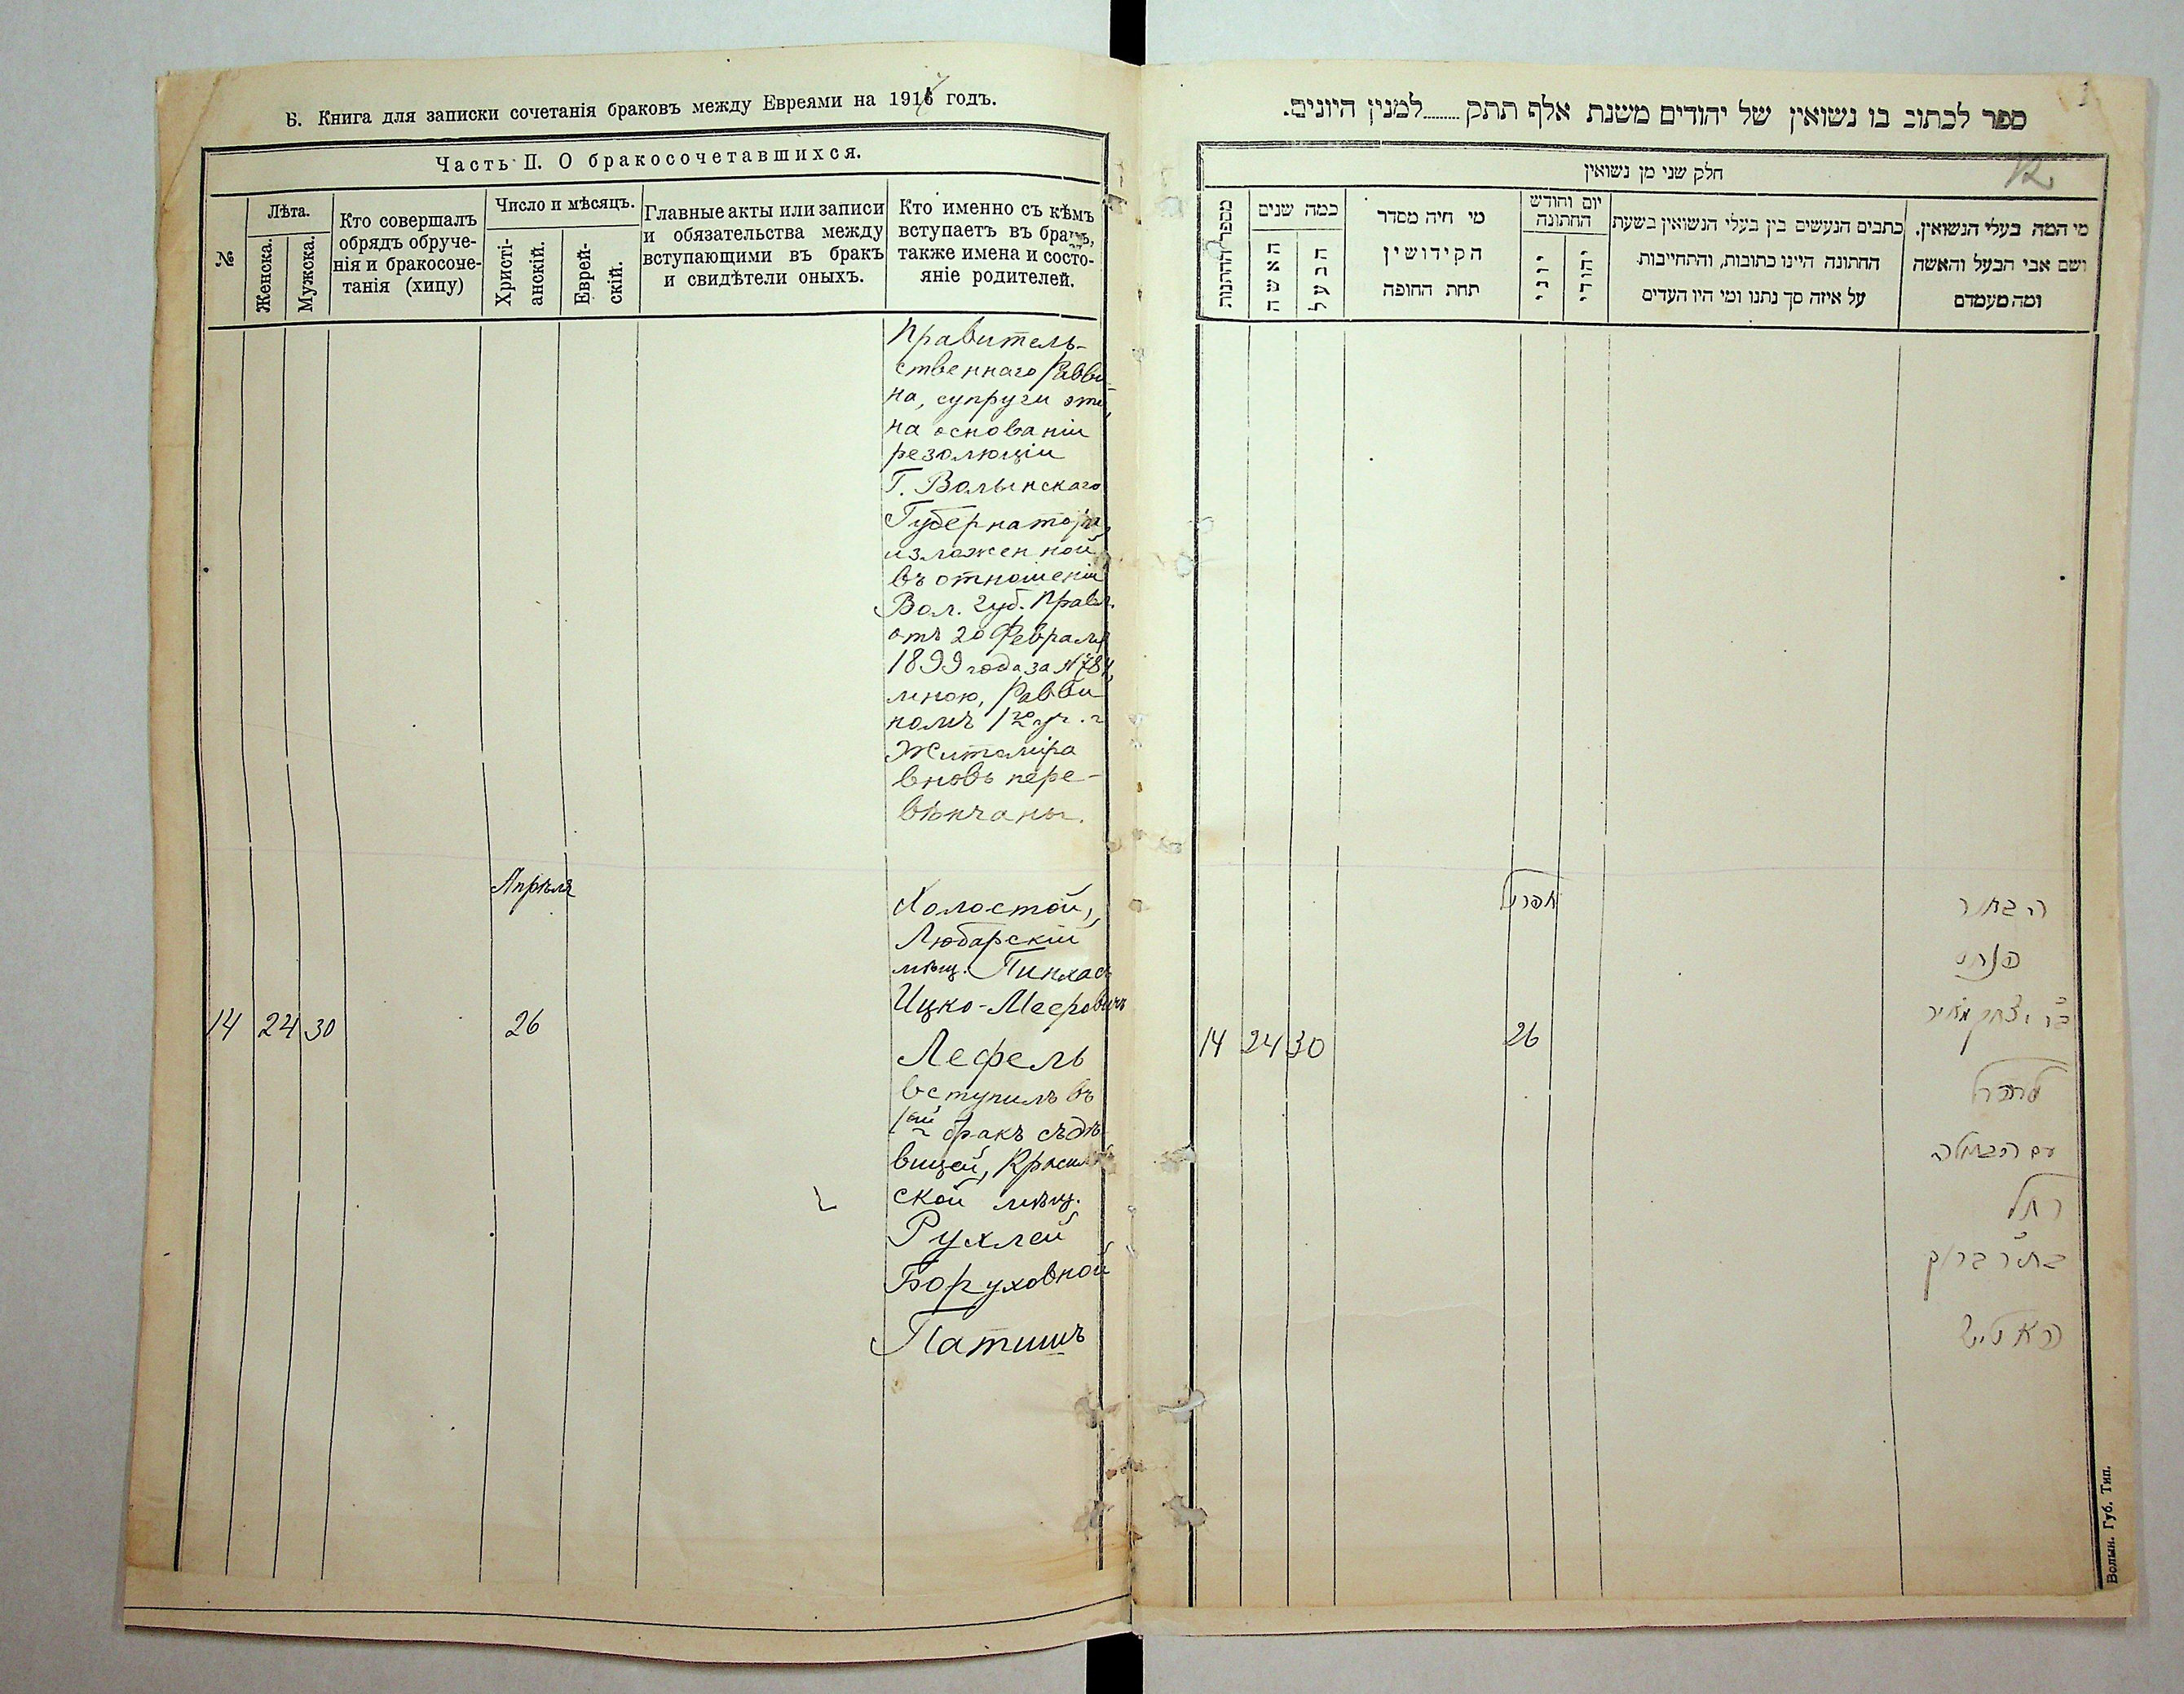 Б. Книга для записки сочетанія браковъ между Евреями на 1917 годъ.
Часть II. О бракосочетавшихся.
№
Лѣта.
Женска.
Мужска.
Кто совершалъ
обрядъ обруче-
нія и бракосоче-
танія (хипу)
Число и мѣсяцъ.
Христі-
анскій.
Еврей-
скій.
Главные акты или записи
и обязательства между
вступающими въ бракъ
и свидѣтели оныхъ.
Кто именно съ кѣмъ
вступаетъ въ бракъ,
также имена и состо-
яніе родителей.
Правитель-
ственнаго Равви-
на, супруги эти,
на основаніи
резолюціи
Г. Волынскаго
Губернатора,
изложенной
въ отношеніи
Вол. Губ. Правл.
отъ 20 Февраля
1899 года за №784,
мною, Равви
номъ 1го уч. г
Житоміра
вновь пере-
вѣнчаны.
Апрѣля
Холостой,
Любарскій
мѣщ. Пинхасъ
Ицко-Мееровичъ
14 24 30 26
Лефель
вступилъ въ
1ый бракъ съ дѣ
вицей,
ской мѣщ.
Рухлей
Боруховной
Патишъ
ספר לכתוב בו נשואין של יהודים משנת אלף תתק........למנין היונים.
12
חלק שני מן נשואין
מספר החתונות
כמה שנים
האשה
הבעל
מי היה מסדר
הקידושין
תחת החופה
יום וחודש
החתונה
יוני
יהודי
כתבים הנעשים בין בעלי הנשואין בשעת
החתונה היינו כתובות, והתחייבות
על איזה סך נתנו ומי היו העדים
מי המה בעלי הנשואין.
ושם אבי הבעל והאשה
ומה מעמדם
אפריל
הבחור
פנחס
ב״ר יצחק מאיר
14 24 30 26
לעפעל
עם הבתולה
רחל
בת״ר ברוך
פאטיש
Волын. Губ. Тип.